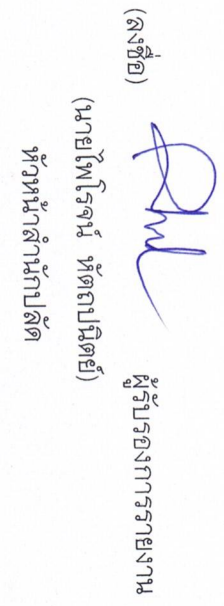 (ลงชื่อ) ผู้รับรองการรายงาน
(นายไพโรจน์ หัตถปนิตย์)
หัวหน้าสำนักปลัด